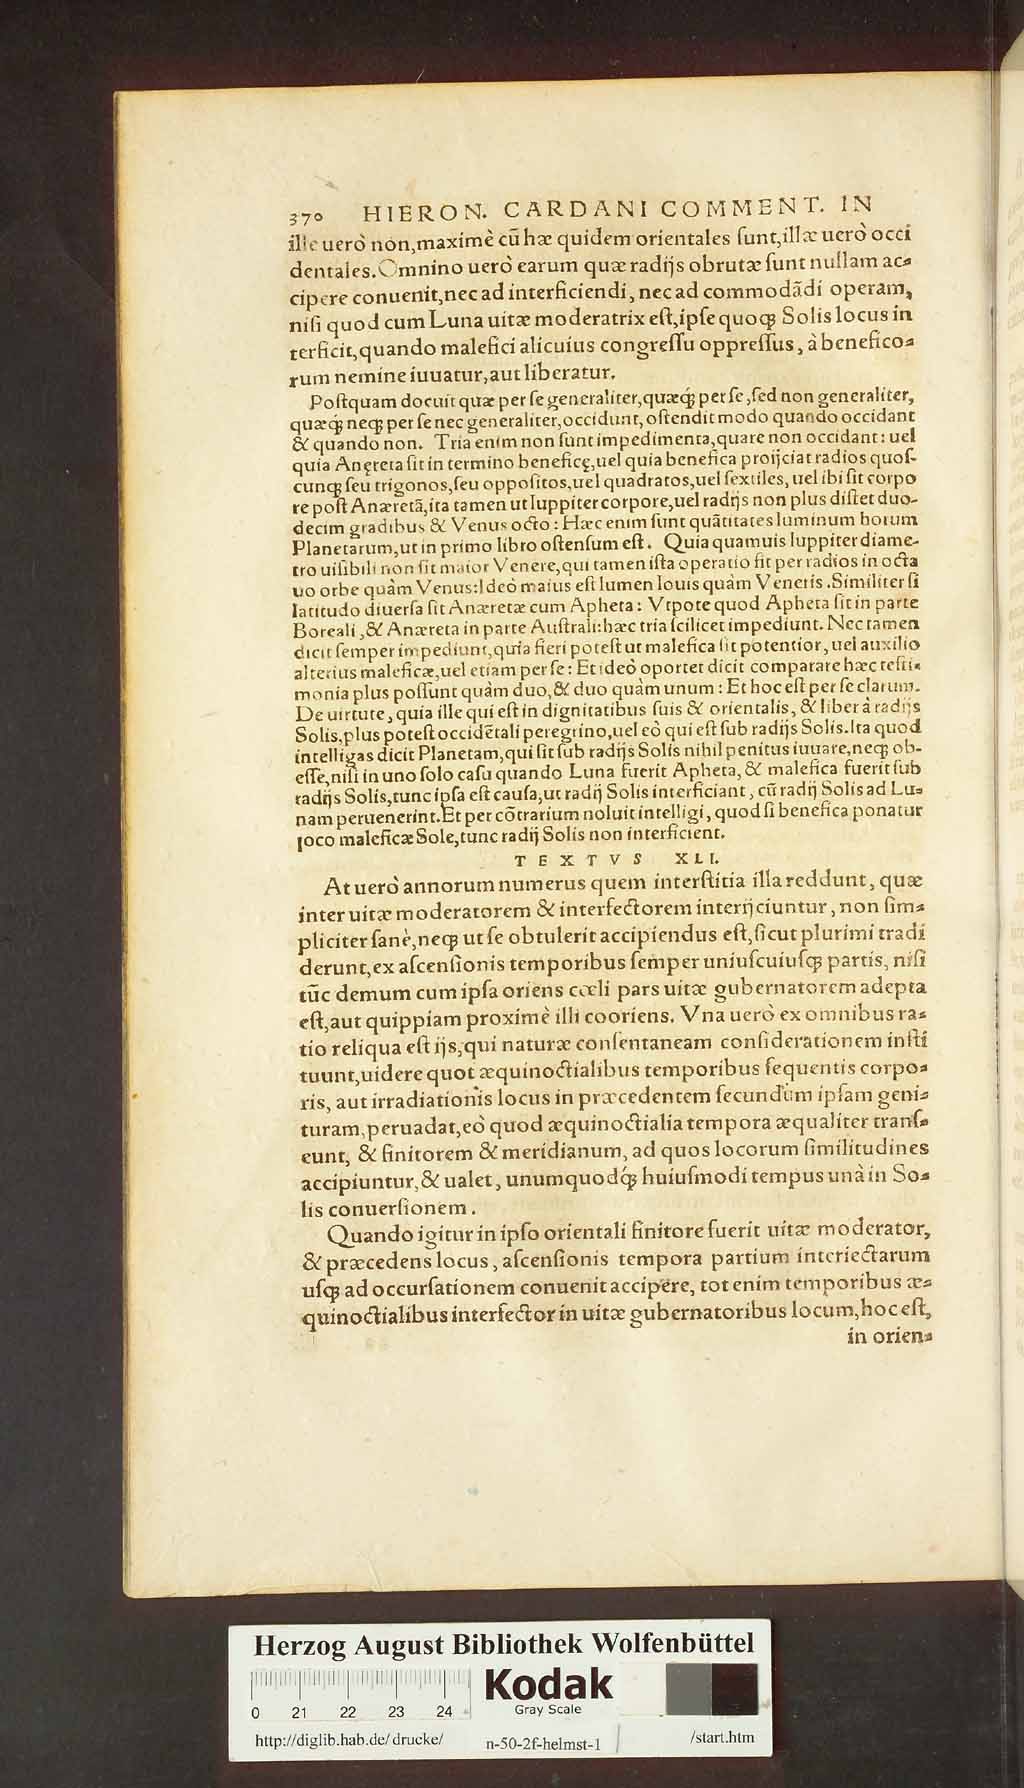 370 HIERON. CARDANI COMMENT. IN
ille uerò non, maximè cũ hæ quidem orientales ſunt, illæ uerò occi
dentales. Omnino uerò earum quæ radijs obrutæ ſunt nullam ac⸗
cipere conuenit, nec ad interficiendi, nec ad commodãdi operam,
niſi quod cum Luna uitæ moderatrix eſt, ipſe quoqꝫ Solis locus in
terficit, quando malefici alicuíus congreſſu oppreſſus, à benefico⸗
rum nemine iuuatur, aut liberatur.
Poſtquam docuit quæ per ſe generaliter, quæqꝫ́ per ſe, ſed non generaliter,
quæqꝫ́ neqꝫ per ſe nec generaliter, occidunt, oſtendit modo quando occidant
& quando non. Tria enim non ſunt impedimenta, quare non occidant: uel
quia Anęreta ſit in termino beneficę, uel quia benefica proijciat radios quoſ-
cunqꝫ ſeu trigonos, ſeu oppoſitos, uel quadratos, uel ſextiles, uel ibi ſit corpo
re poſt Anæretã, ita tamen ut Iuppiter corpore, uel radijs non plus diſtet duo-
decim gradibus & Venus octo: Hæc enim ſunt quãtitates luminum horum
Planetarum, ut in primo libro oſtenſum eſt. Quia quamuis Iuppiter diame-
tro uiſibili non ſit maior Venere, qui tamen iſta operatio fit per radios in octa
uo orbe quàm Venus: Ideò maius eſt lumen Iouis quàm Veneris. Similiter ſi
latitudo diuerſa ſit Anæretæ cum Apheta: Vtpote quod Apheta ſit in parte
Boreali, & Anæreta in parte Auſtrali: hæc tria ſcilicet impediunt. Nec tamen
dicit ſemper impediunt, quia fieri poteſt ut malefica ſit potentior, uel auxilio
alterius maleficæ, uel etiam per ſe: Et ideò oportet dicit comparare hæc teſti⸗
monia plus poſſunt quàm duo, & duo quàm unum: Et hoc eſt per ſe clarum.
De uirtute, quia ille qui eſt in dignitatibus ſuis & orientalis, & liber à radijs
Solis, plus poteſt occidẽtali peregrino, uel eò qui eſt ſub radijs Solis. Ita quod
intelligas dicit Planetam, qui ſit ſub radijs Solis nihil penitus iuuare, neqꝫ ob-
eſſe, niſi in uno ſolo caſu quando Luna fuerit Apheta, & malefica fuerit ſub
radijs Solis, tunc ipſa eſt cauſa, ut radij Solis interficiant, cũ radij Solis ad Lu⸗
nam peruenerint. Et per cõtrarium noluit intelligi, quod ſi benefica ponatur
loco maleficæ Sole, tunc radij Solis non interficient.
TEXTVS XLI.
At uerò annorum numerus quem interſtitia illa reddunt, quæ
inter uitæ moderatorem & interfectorem interijciuntur, non ſim⸗
pliciter ſanè, neqꝫ ut ſe obtulerit accipiendus eſt, ſicut plurimi tradi
derunt, ex aſcenſionis temporibus ſemper uniuſcuiuſqꝫ partis, niſi
tũc demum cum ipſa oriens cœli pars uitæ gubernatorem adepta
eſt, aut quippiam proximè illi cooriens. Vna uerò ex omnibus ra⸗
tio reliqua eſt ijs, qui naturæ conſentaneam conſiderationem inſti
tuunt, uidere quot æquinoctialibus temporibus ſequentis corpo⸗
ris, aut irradiationis locus in præcedentem ſecundùm ipſam geni⸗
turam, peruadat, eò quod æquinoctialia tempora æqualiter tranſ⸗
eunt, & finitorem & meridianum, ad quos locorum ſimilitudines
accipiuntur, & ualet, unumquodqꝫ́ huiuſmodi tempus unà in So⸗
lis conuerſionem.
Quando igitur in ipſo orientali finitore fuerit uitæ moderator,
& præcedens locus, aſcenſionis tempora partium interiectarum
uſqꝫ ad occurſationem conuenit accipere, tot enim temporibus æ⸗
quinoctialibus interfector in uitæ gubernatoribus locum, hoc eſt,
in orien⸗
Herzog August Bibliothek Wolfenbüttel
Kodak
Gray Scale
0 21 22 23 24
http://diglib.hab.de/drucke/ n-50-2f-helmst-1 /start.htm